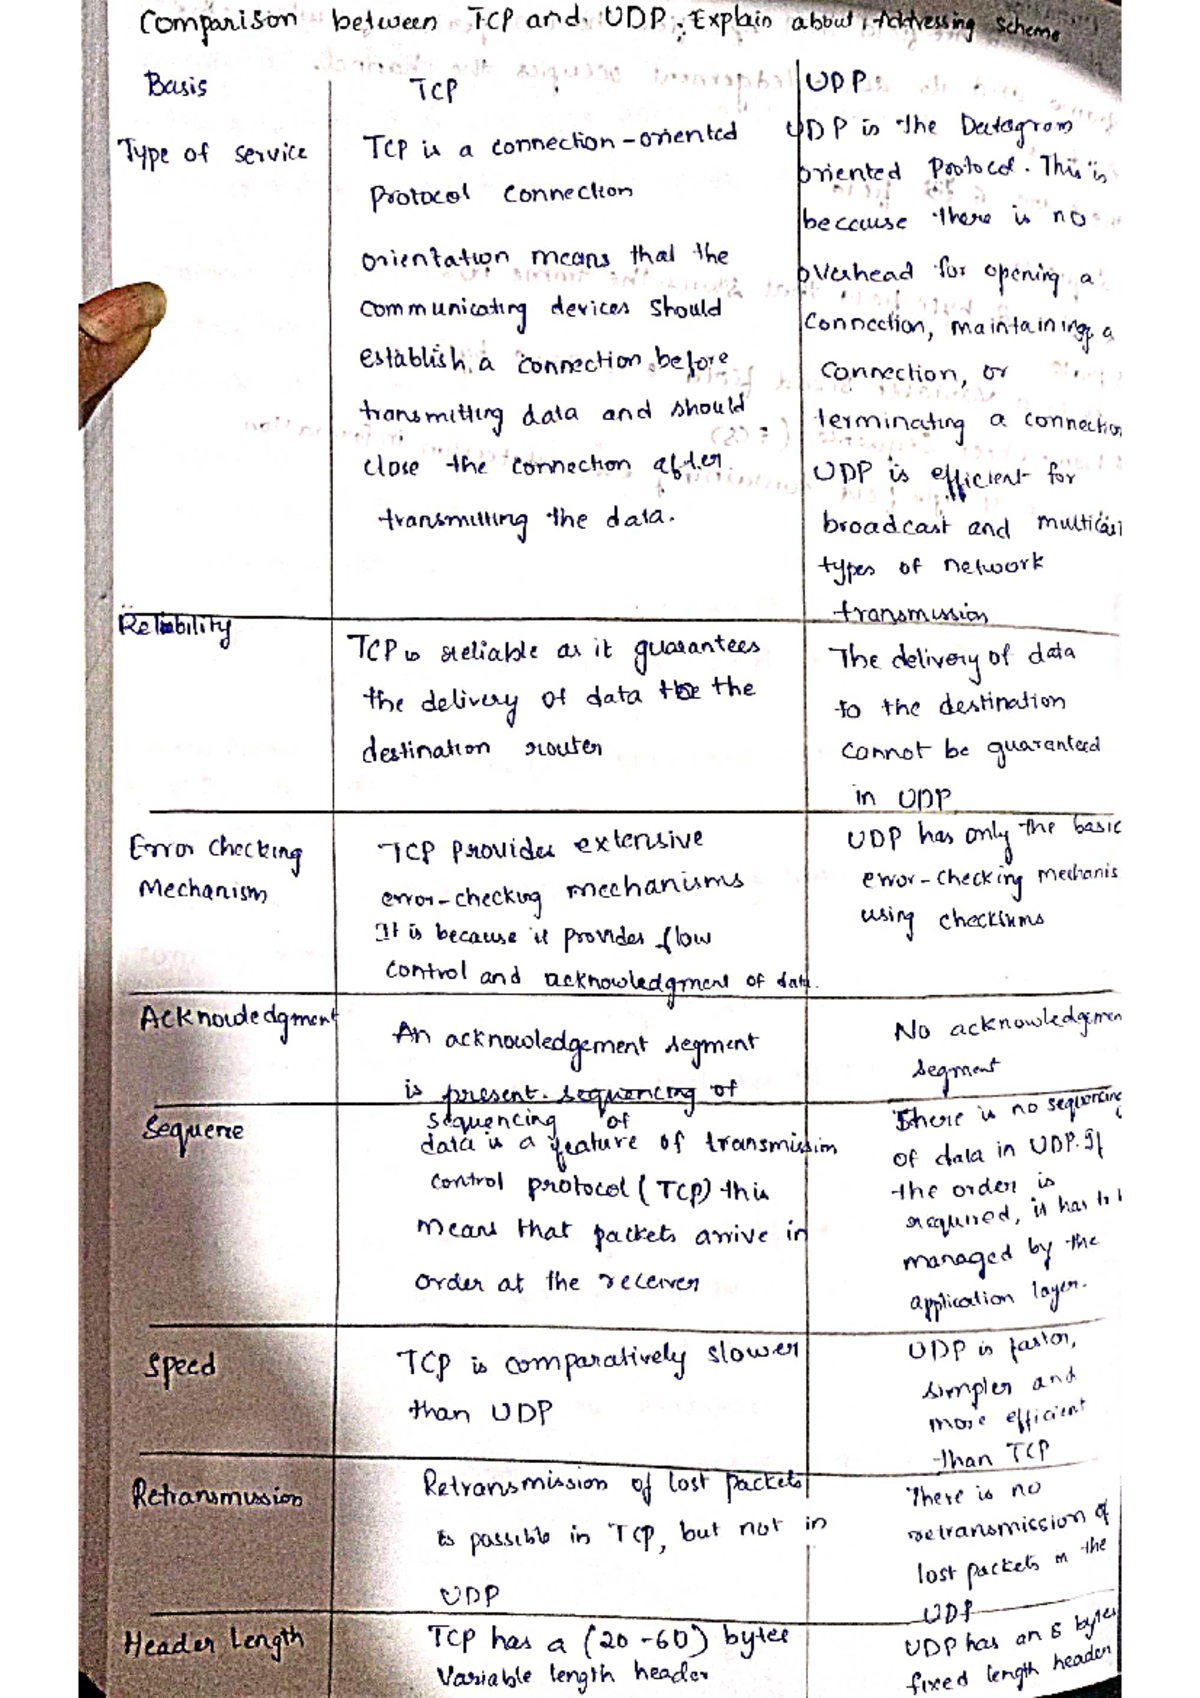 Comparison between TCP and UDP. Explain about Addressing Scheme
Basis
TCP
UDP
Type of service
TCP is a connection-oriented
Protocol Connection
orientation means that the
communicating devices should
establish a connection before
transmitting data and should
close the connection after
transmitting the data.
UDP is the Datagram
oriented Protocol. This is
because there is no
overhead for opening a
connection, maintaining a
connection, or
terminating a connection
UDP is efficient for
broadcast and
types of network
transmission
Reliability
TCP is reliable as it guarantees
the delivery of data the
destination router
The delivery of data
to the destination
cannot be guaranteed
in UDP
Error Checking
Mechanism
TCP Provides extensive
error-checking mechanisms
It is because it provides flow
control and acknowledgment of data.
UDP has only the basic
error-checking
using checksums
Acknowledgment
An acknowledgement segment
is present. sequencing of
No
segment
Sequence
sequencing of
data is a feature of transmission
control protocol (TCP) this
means that packets arrive in
order at the receiver
There is no sequencing
of data in UDP. If
the order is
required, it has to
managed by the
application layer.
Speed
TCP is comparatively slower
than UDP
UDP is faster,
simpler and
more efficient
than TCP
Retransmission
Retransmission of lost packets
is possible in TCP, but not in
UDP
There is no
retransmission of
lost packets in the
UDP
Header Length
TCP has a (20-60) bytes
Variable length header
UDP has an 8 bytes
fixed length header